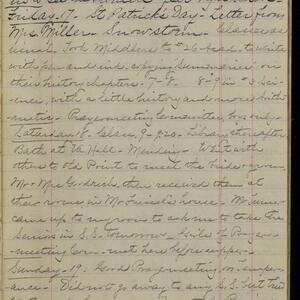 Friday, 17. St. Patrick's Day - Letter from
Mrs. Miller. Snowstorm. Classes as
usual. Took Middlers to #26 - to write
with pen and ink, copying "summaries" on
their history chapters. 7-8. 8-9 in
with a little history and more Arith-
metic. Prayer meeting Committee
Saturday 18. Class, 9-9.20. Library thereafter
Bath at Va. Hall. Mending. Went with
others to Old Point to meet the bride + groom
Mr. + Mrs. Goodrich, then received them at
their rooms in house. Mr.
came up to my room to ask me to take the
Seniors in S.S. tomorrow. Girls' Prayer-
meeting Com. met here before supper.
Sunday - 19. Good Prayer meeting on temper-
ance. Did not go away to any S.S. but